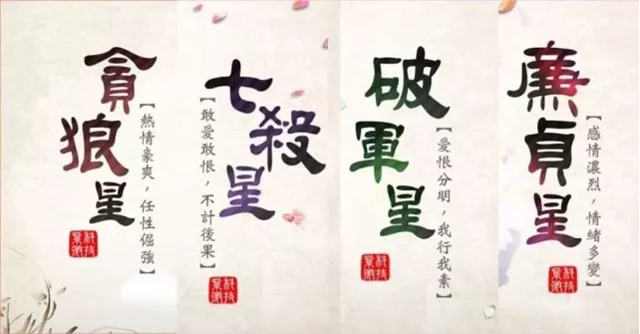 貪狼星
【熱情豪爽，任性倔強】
七殺星
【敢愛敢恨，不計後果】
破軍星
【愛恨分明，我行我素】
廉貞星
【感情濃烈，情緒多變】